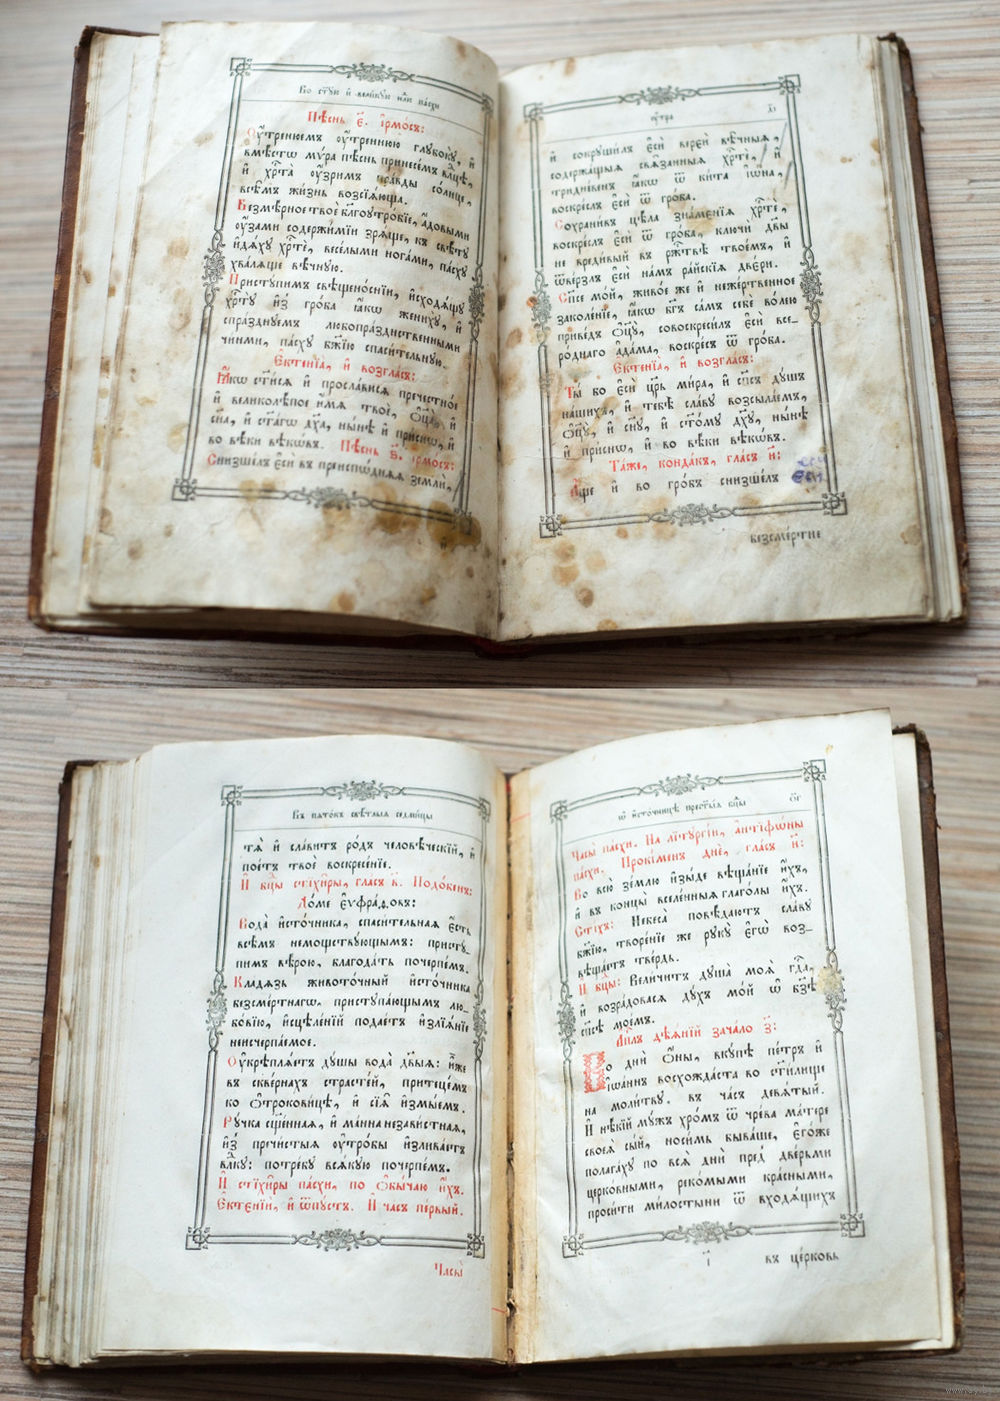 Во ст҃ꙋю и҆ вели́кꙋю нл҃ю па́схи
Пѣ́снь є҃. і҆рмо́съ:
Оу҆́тренюемъ оу҆́тренюю глꙋбокꙋ̀, и҆
вмѣ́стѡ мѵ́ра пѣ́снь принесе́мъ вл҃цѣ,
и҆ хр҃та̀ оу҆́зримъ пра́вды со́лнце,
всѣ̑мъ жи́знь возсїѧ́юща.
Безмѣ́рное твоѐ бл҃гоꙋтро́бїе, а҆́довыми
оу҆́зами содержи́мїи зрѧ́ще, къ свѣ́тꙋ
и҆дѧ́хꙋ хр҃тѐ, весе́лыми нога́ми, па́схꙋ
хва́лѧще вѣ́чнꙋю.
Пристꙋ́пимъ свѣщено́снїи, и҆сходѧ́щꙋ
хр҃тꙋ̀ и҆з̾ гро́ба ꙗ҆́кѡ женихꙋ̀, и҆
спра́зднꙋемъ любопра́зднственными
чи́нми, па́схꙋ бж҃їю спаси́тельнꙋю.
Є҆ктенїа̀, и҆ возгла́съ:
Ꙗ҆́кѡ ст҃и́сѧ и҆ просла́висѧ пречестно́е
и҆ великолѣ́пое и҆́мѧ твоѐ, ѻ҆ц҃а̀, и҆
сн҃а, и҆ ст҃а́гѡ дх҃а, ны́нѣ и҆ при́снѡ, и҆
во вѣ́ки вѣкѡ́въ. Пѣ́снь ѕ҃. і҆рмо́съ:
Снизше́лъ є҆сѝ въ преиспѡ́днѧѧ землѝ,
оу҆́тра
и҆ сокрꙋши́лъ є҆сѝ вереѝ вѣ̑чныѧ,
содержа́щыѧ свѧ̑занныѧ хр҃тѐ, и҆
тридне́венъ ꙗ҆́кѡ ѿ ки́та і҆ѡ́на,
воскре́слъ є҆сѝ ѿ гро́ба.
Сохрани́въ цѣ̑ла зна́мєнїѧ хр҃тѐ,
воскре́слъ є҆сѝ ѿ гро́ба, ключи̑ дв҃ы
не вреди́вый въ рж҃твѣ̀ твое́мъ, и҆
ѿве́рзлъ є҆сѝ на́мъ ра́йскїѧ две́ри.
Сп҃се мо́й, живо́е же и҆ неже́ртвенное
заколе́нїе, ꙗ҆́кѡ бг҃ъ са́мъ себѐ во́лею
приве́дъ ѻ҆ц҃ꙋ̀, совоскреси́лъ є҆сѝ все_
ро́днаго а҆да́ма, воскре́съ ѿ гро́ба.
Є҆ктенїа̀, и҆ возгла́съ:
Ты́ бо є҆сѝ цр҃ь ми́ра, и҆ сп҃съ дꙋ́шъ
на́шихъ, и҆ тебѣ̀ сла́вꙋ возсыла́емъ,
ѻ҆ц҃ꙋ̀, и҆ сн҃ꙋ, и҆ ст҃о́мꙋ дх҃ꙋ, ны́нѣ
и҆ при́снѡ, и҆ во вѣ́ки вѣкѡ́въ.
Та́же, конда́къ, гла́съ и҃:
А҆́ще и҆ во гро́бъ снизше́лъ є҆сѝ
безсме́ртне
Въ пѧто́къ свѣ́тлыѧ седми́цы
тѧ̀ и҆ сла́витъ ро́дъ человѣ́ческїй, и҆
пое́тъ твоѐ воскресе́нїе.
И҆ бц҃ы стїхи̑ры, гла́съ в҃. Подо́бенъ:
До́ме є҆ѵфра́ѳовъ:
Вода̀ и҆сто́чника, спаси́тельная є҆́сть
всѣ̑мъ немощствꙋ́ющымъ: пристꙋ́_
пимъ вѣ́рою, благода́ть поче́рпемъ.
Кла́дѧзь живото́чный и҆сто́чника
безсме́ртнагѡ, пристꙋпа́ющымъ лю_
бо́вїю, и҆сцѣле́нїй подае́тъ и҆злїѧ́нїе
неисчерпа́емое.
Оу҆крѣплѧ́етъ дꙋ́шы вода̀ дв҃ыѧ: и҆̀же
въ сквє́рнахъ страсте́й, прите́цемъ
ко ѻ҆трокови́цѣ, и҆ сїѧ̑ и҆змы́емъ.
Рꙋ́чка сщ҃е́нная, и҆ ма́нна незави́стная,
и҆з̾ пречи́стыѧ оу҆тро́бы и҆злива́етъ
вл҃кꙋ: потре́бꙋ всѧ́кꙋю поче́рпемъ.
И҆ стїхи̑ры па́схи, по ѻ҆бы́чаю и҆́хъ.
Є҆ктенїѝ, и҆ ѿпꙋ́стъ. И҆ ча́съ пе́рвый.
Часы̀
ѡ҆ и҆сто́чницѣ прест҃ы́ѧ бц҃ы
ѻ҃г
Часы̀ па́схи. На лїтꙋргі́и, а҆нтїфѡ́ны
па́схи. Проки́менъ днѐ, гла́съ и҃:
Во всю̀ зе́млю и҆зы́де вѣща́нїе и҆́хъ,
и҆ въ концы̀ вселе́нныѧ глаго́лы и҆́хъ.
Сті́хъ: Небеса̀ повѣ́даютъ сла́вꙋ
бж҃їю, творе́нїе же рꙋкꙋ̀ є҆гѡ̀ воз_
вѣща́етъ тве́рдь.
И҆ бц҃ы: Вели́читъ дꙋша̀ моѧ̀ гд҃а,
и҆ возра́довасѧ дꙋ́хъ мо́й ѡ҆ бз҃ѣ
сп҃сѣ мое́мъ.
А҆пл҃ъ дѣѧ́нїй зача́ло з҃:
Во дни̑ ѻ҆́ны, вкꙋ́пѣ пе́тръ и҆
і҆ѡа́ннъ восхожда́ста во ст҃и́лище
на моли́твꙋ, въ ча́съ девѧ́тый.
И҆ нѣ́кїй мꙋ́жъ хро́мъ ѿ чре́ва ма́тере
своеѧ̀ сы́й, носи́мь быва́ше, є҆го́же
полага́хꙋ по всѧ̑ дни̑ пред̾ две́рьми
церко́вными, реко́мыми кра́сными,
проси́ти ми́лостыни ѿ входѧ́щихъ
і҃
въ це́рковь